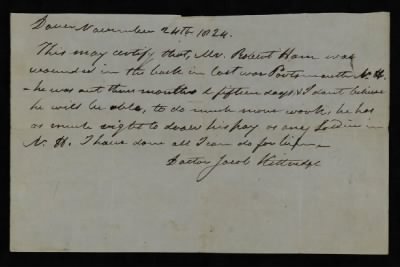 Dover November 24th 1824.
This may certify that, Mr. Robert Ham was
wounded in the back in last war Portsmouth N. H.
- he was out three months & fifteen days & I dont believe
he will be able, to do much more work, he has
as much right to draw his pay as any Soldier in
N. H. I have done all I can do for him –
Doctor Jacob Kittredge